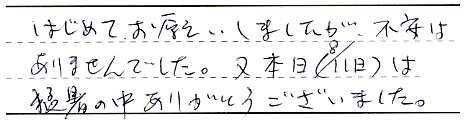 はじめてお願いしましたが、不安は
ありませんでした。又本日(8/11日)は
猛暑の中ありがとうございました。